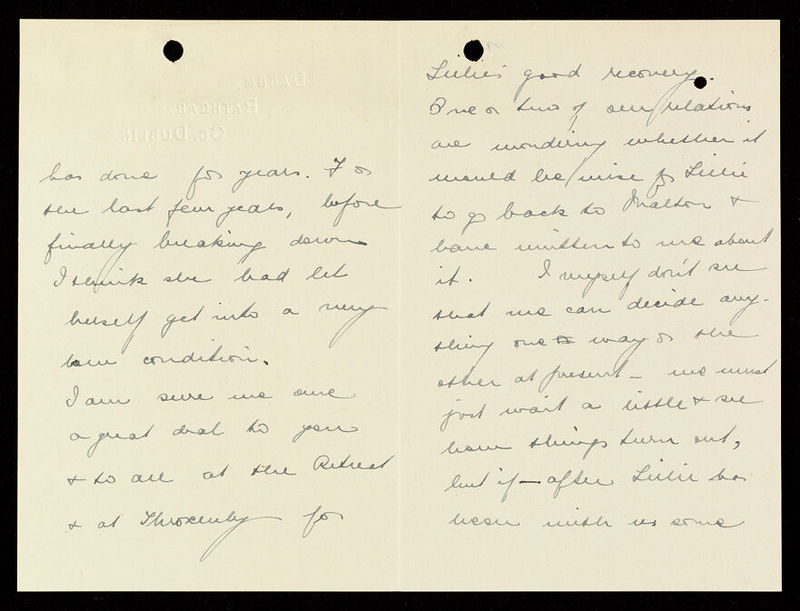 DANUM,
RATHGAR,
CO. DUBLIN.
has done for years. For
the last few years, before
finally breaking down
I think she had let
herself get into a very
low condition.
I am sure we owe
a great deal to you
& to all at the Retreat
& at Throxenby for
Lillie's good recovery.
One or two of our relations
are wondering whether it
would be wise for Lillie
to go back to Malton &
have written to me about
it. I myself don't see
that we can decide any-
thing one way or the
other at present – we must
just wait a little & see
how things turn out,
but if – after Lillie has
been with us some